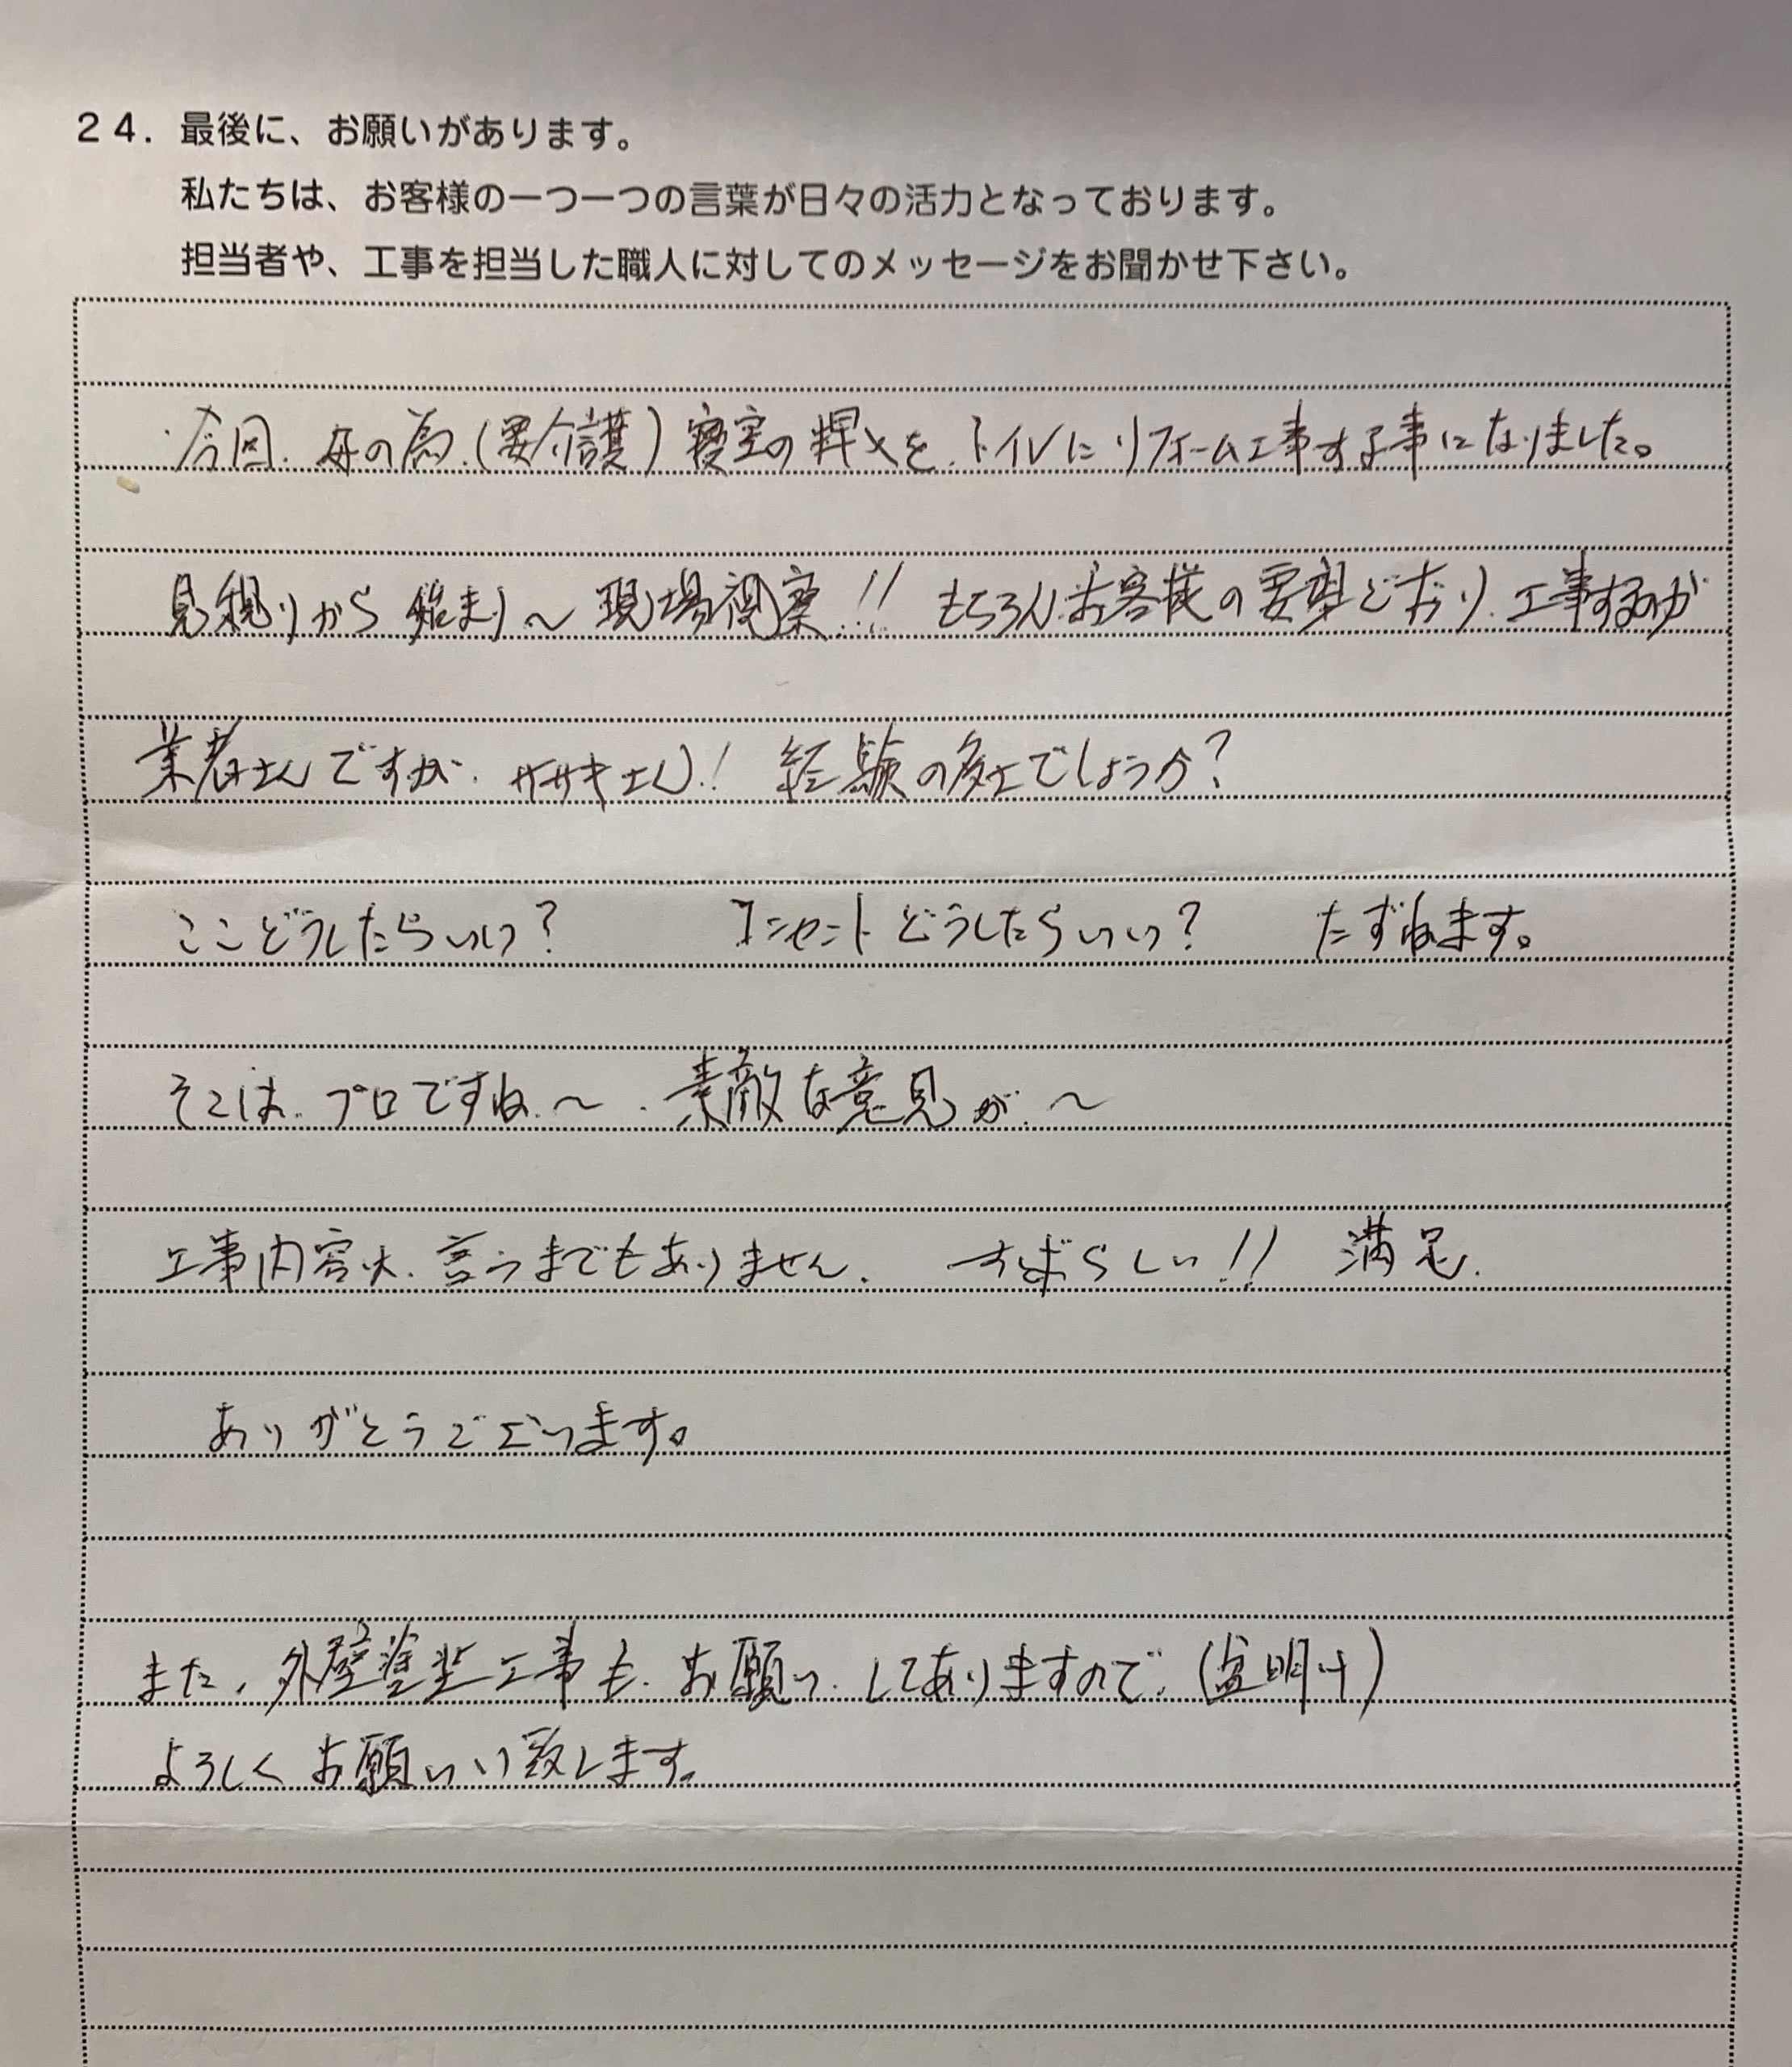 24. 最後に、お願いがあります。
私たちは、お客様の一つ一つの言葉が日々の活力となっております。
担当者や、工事を担当した職人に対してのメッセージをお聞かせ下さい。
今回、母の為、(要介護) 寝室の押入を、トイレにリフォーム工事する事になりました。
見積りから 始まり〜 現場視察!! もちろん、お客様の要望どおり、工事するのが
業者さんですが、ササキさん! 経験の多さでしょうか?
ここどうしたらいい? コンセントどうしたらいい? たずねます。
そこは、プロですね〜、素敵な意見が、〜
工事内容は、言うまでもありません。 すばらしい!! 満足。
ありがとうございます。
また、外壁塗装工事も、お願い、してありますので、(盆明け)
よろしくお願いい致します。